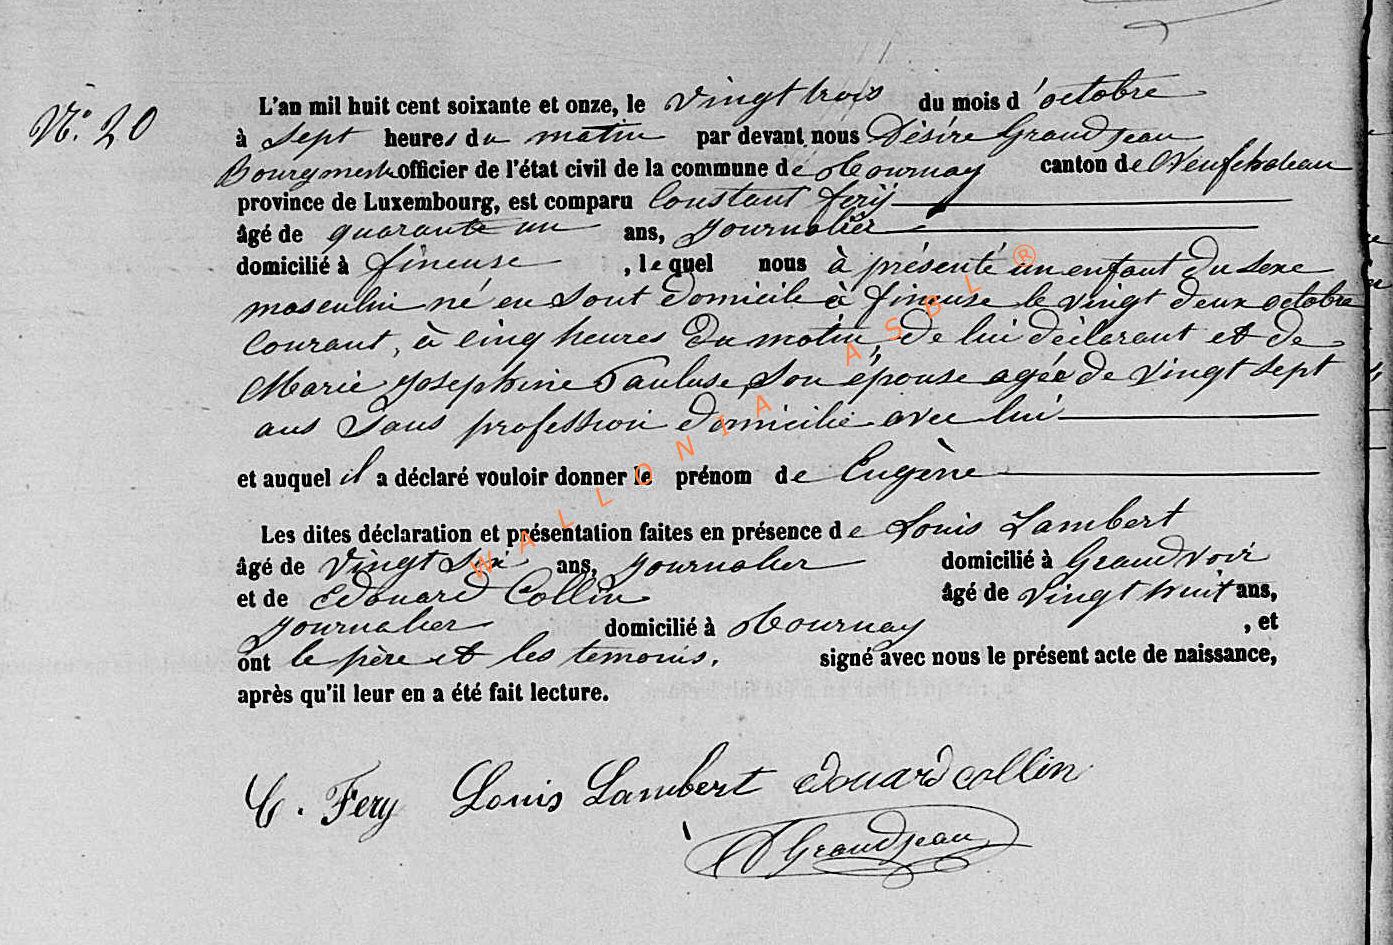 N.° 20
L'an mil huit cent soixante et onze, le vingt trois du mois d'octobre
à sept heures du matin par devant nous Désiré Grandjean
Bourgmestre officier de l'état civil de la commune de Tournay canton de Neufchateau
province de Luxembourg, est comparu Constant ferÿ
âgé de quarante un ans, journalier
domicilié à fineuse, lequel nous à présenté un enfant du sexe
masculin né en sont domicile à fineuse le vingt deux octobre
courant, à cinq heures du matin, de lui déclarant et de
Marie Josephine Pauluse, son épouse agée de vingt sept
ans sans profession domicilié avec lui
et auquel il a déclaré vouloir donner le prénom de Eugène
Les dites déclaration et présentation faites en présence de Louis Lambert
âgé de vingt six ans, journalier domicilié à Grandvoir
et de Edouard Collin âgé de vingt huit ans,
journalier domicilié à Tournay, et
ont le père et les temoins. signé avec nous le présent acte de naissance,
après qu'il leur en a été fait lecture.
C. Fery Louis Lambert Edouard Collin
D Grandjean
WALLONIA ASBL ®